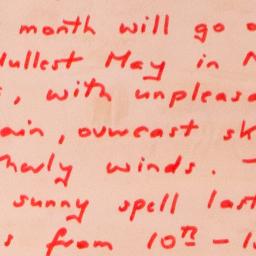 month will go o
dullest May in N
, with unpleasa
ain, overcast sk
herly winds. T
sunny spell last
s from 10th - 1